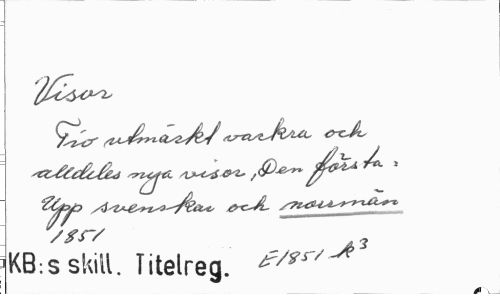 Visor
Tio utmärkt vackra och
alldeles nya visor, Den första:
Upp svenskar och norrmän
1851
KB:s skill. Titelreg. E1851 k3